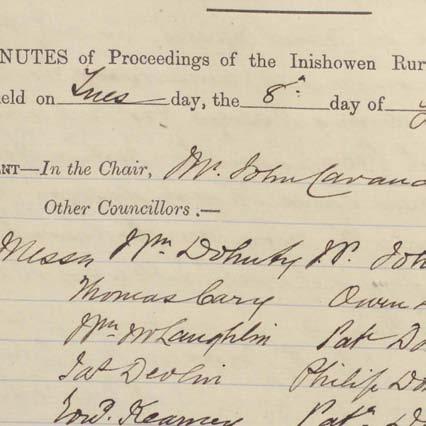 NUTES of Proceedings of the Inishowen Rur
held on Tues day, the 8th day of
ENT—In the Chair, Mr. John Cavana
Other Councillors.—
Messrs Wm Doherty JP. Joh
Thomas Cary Owen
Wm McLaughlin Patk Do
Pat Devlin Philip Do
Edwd. Kearney Patk Do